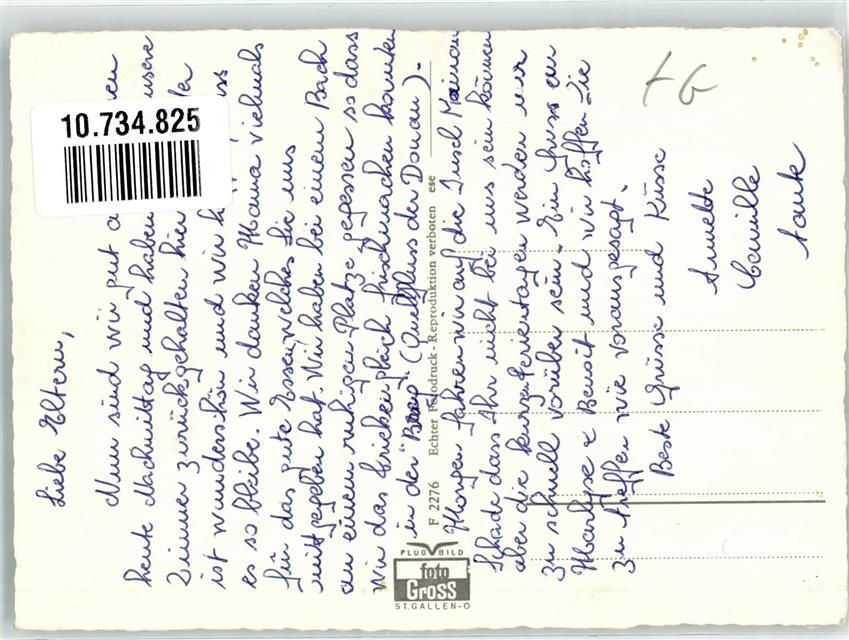 Liebe Eltern,
Nun sind wir gut
heute Nachmittag und haben unsere
Zimmer zurückgehalten hier
ist wunderschön und wir
es so bleibe. Wir danken Mama vielmals
für das gute Essen welches Sie uns
mitgegeben hat. Wir haben bei einem Bach
an einem ruhigen Platze gegessen so dass
wir das bischen gleich frischmachen konnten
in der "Breg" (Quellfluss der Donau).-
Morgen fahren wir auf die Insel Mainau
Schade dass Ihr nicht bei uns sein können
aber die kurzen Ferientagen werden nur
zu schnell vorüber sein. Ein Gruss an
Marlyse & Benoit und wir hoffen Sie
zu treffen wie vorausgesagt.
Beste Grüsse und Küsse
Annette
Camille
Tante
FG
F 2276 Echter Fotodruck - Reproduktion verboten ese
FLUGBILD
foto
GROSS
ST.GALLEN-O
10.734.825